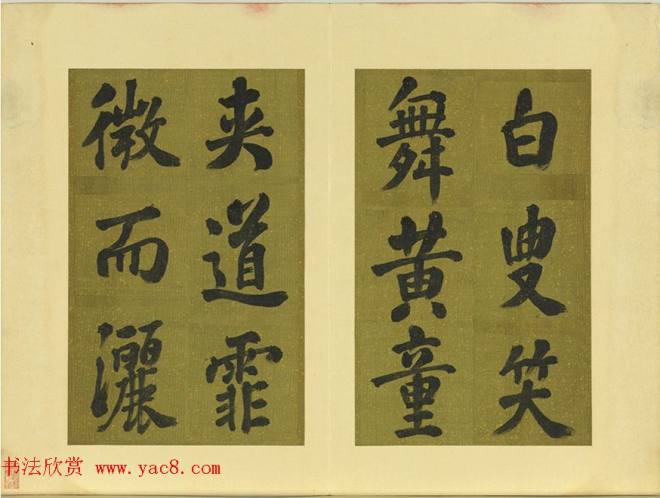 白叟笑
舞黃童
夾道霏
微而灑
书法欣赏 www.yac8.com